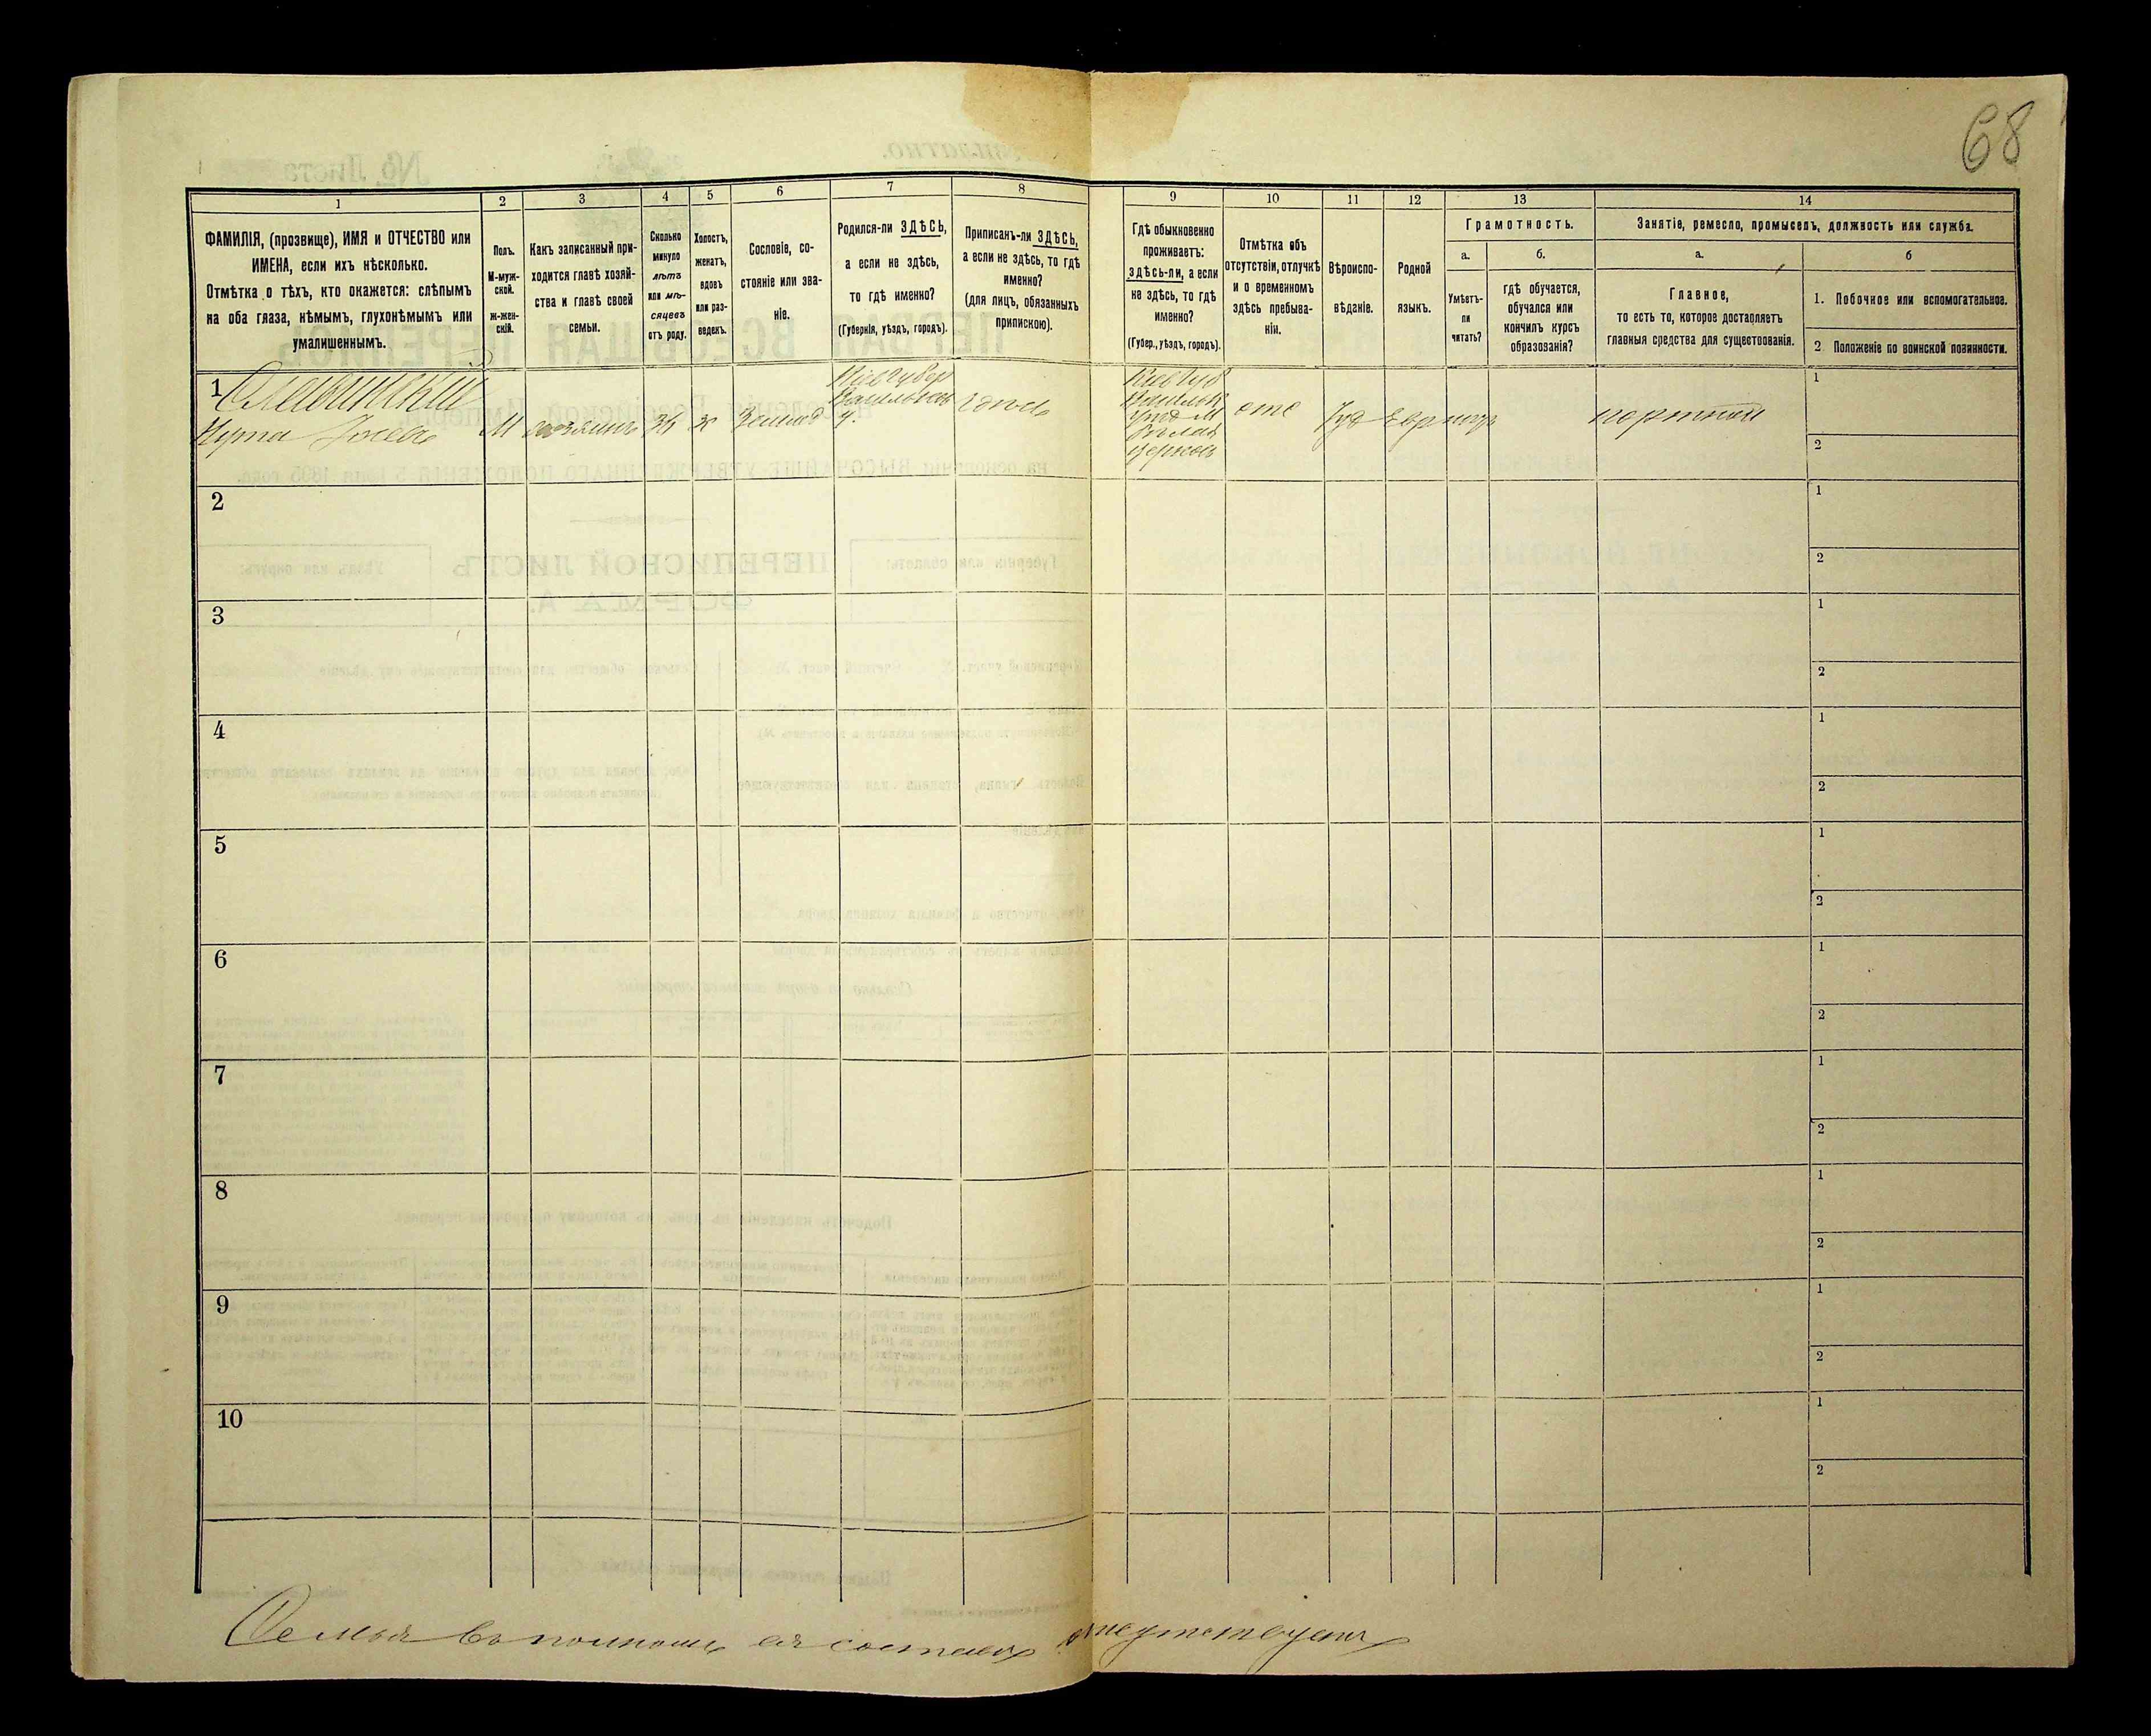 68
1
2
3
4
5
6
7
8
9
10
11
12
13
14
ФАМИЛІЯ, (прозвище), ИМЯ и ОТЧЕСТВО или
ИМЕНА, если ихъ нѣсколько.
Отмѣтка о тѣхъ, кто окажется: слѣпымъ
на оба глаза, нѣмымъ, глухонѣмымъ или
умалишеннымъ.
Полъ.
М-муж-
ской.
ж-жен-
скій.
Какъ записанный при-
ходится главѣ хозяй-
ства и главѣ своей
семьи.
Сколько
минуло
лѣтъ
или мѣ-
сяцевъ
отъ роду.
Холостъ,
женатъ,
вдовъ
или раз-
веденъ.
Сословіе, со-
стояніе или зва-
ніе.
Родился-ли ЗДѢСЬ,
а если не здѣсь,
то гдѣ именно?
(Губернія, уѣздъ, городъ).
Приписанъ-ли ЗДѢСЬ,
а если не здѣсь, то гдѣ
именно?
(для лицъ, обязанныхъ
припискою).
Гдѣ обыкновенно
проживаетъ:
здѣсь-ли, а если
не здѣсь, то гдѣ
именно?
(Губер., уѣздъ, городъ).
Отмѣтка объ
отсутствіи, отлучкѣ
и о временномъ
здѣсь пребыва-
ніи.
Вѣроиспо-
вѣданіе.
Родной
языкъ.
Грамотность.
а.
б.
Умѣетъ-
ли
читать?
гдѣ обучается,
обучался или
кончилъ курсъ
образованія?
Занятіе, ремесло, промыселъ, должность или служба.
а.
б
Главное,
то есть то, которое доставляетъ
главныя средства для существованія.
1. Побочное или вспомогательное.
2. Положеніе по воинской повинности.
1
М
хозяинъ
34
ж
Кіев губер
у.
Кіев Губ
уезд М
Белая
церковь
отс
Іуд
Евр
портной
1
2
2
1
2
3
1
2
4
1
2
5
1
2
6
1
2
7
1
2
8
1
2
9
1
2
10
1
2
Семья въ полномъ ея составѣ отсутствуетъ